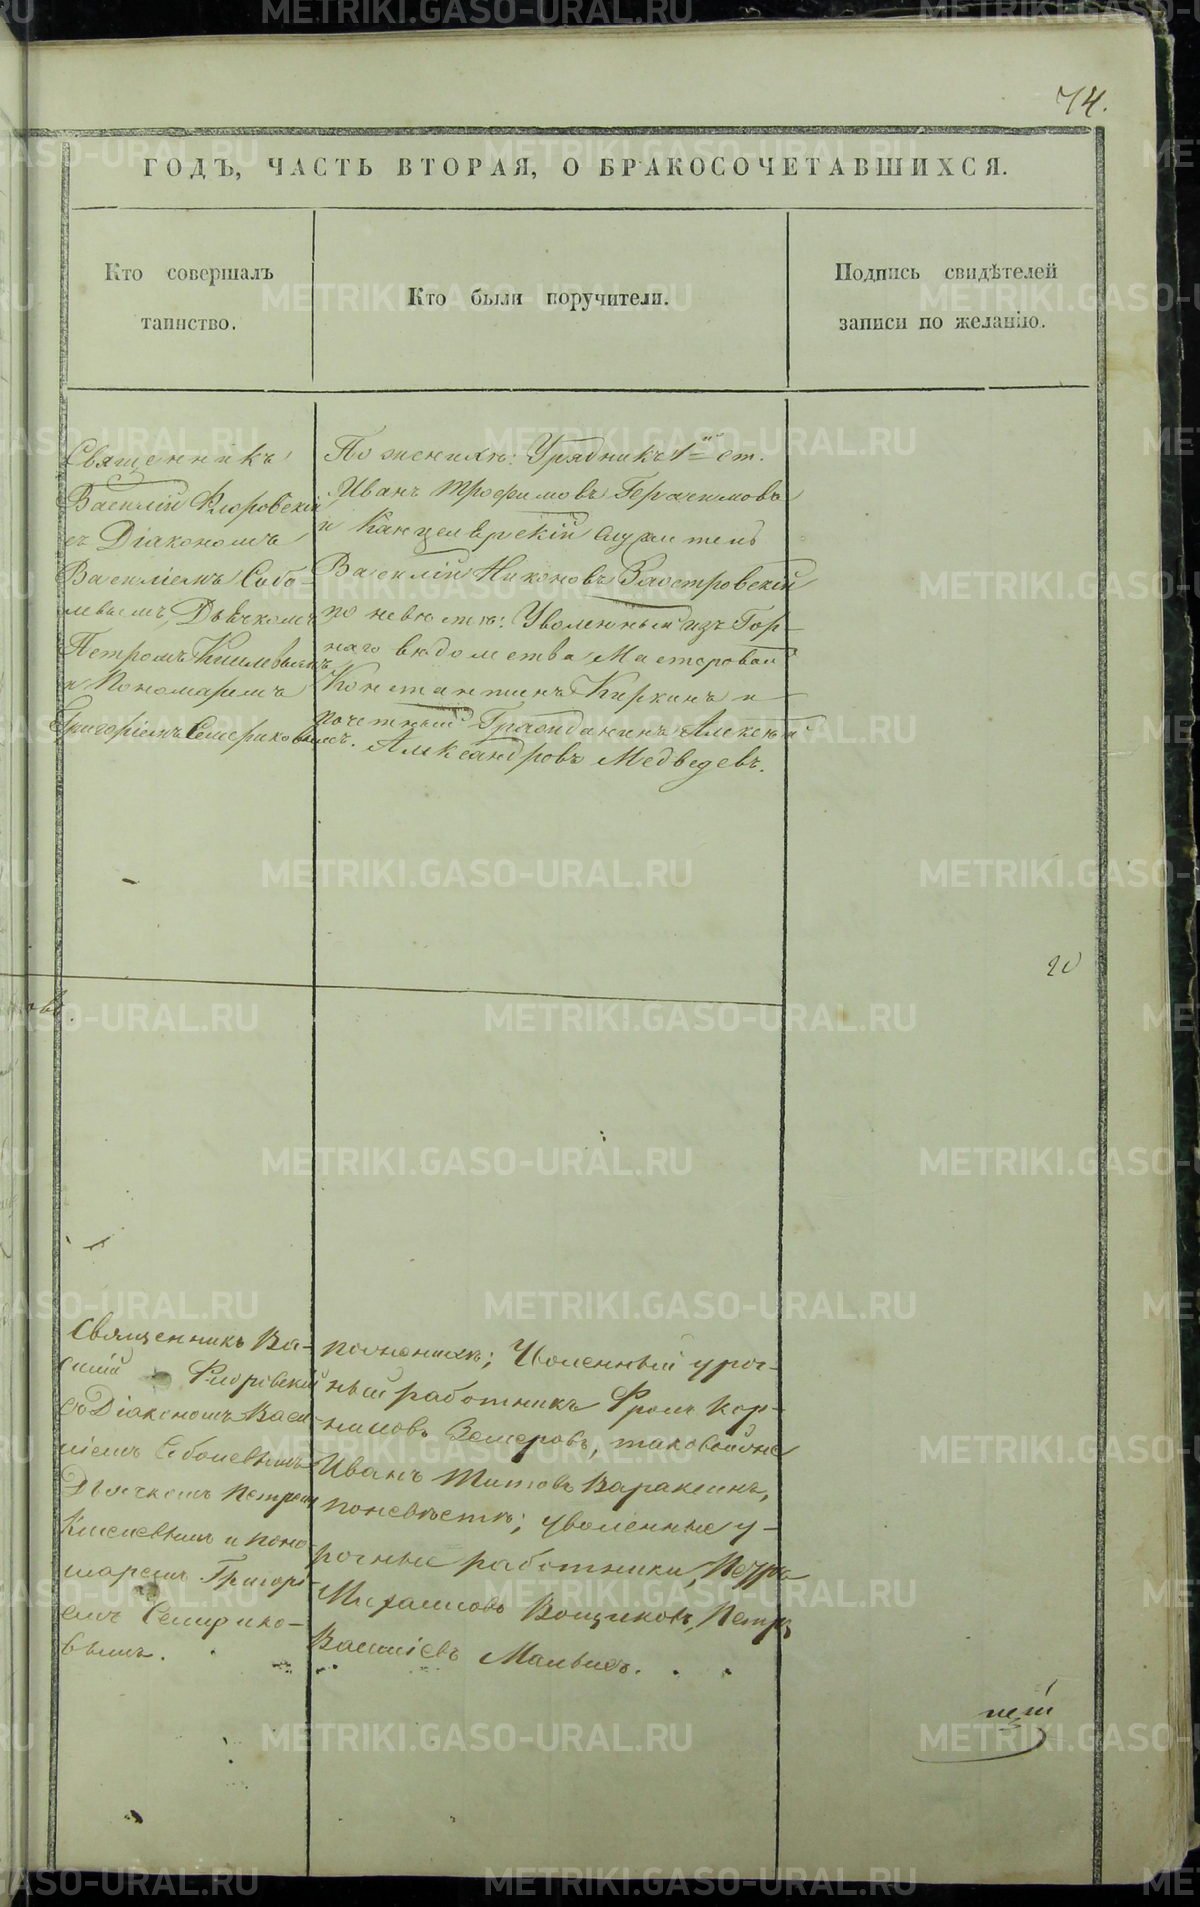 74.
ГОДЪ, ЧАСТЬ ВТОРАЯ, О БРАКОСОЧЕТАВШИХСЯ.
Кто совершалъ
таинство.
Кто были поручители.
Подпись свидѣтелей
записи по желанію.
Священникъ
Василій Флоровскій
съ Діакономъ
Василіемъ Собо-
левымъ, Дьячкомъ
Петромъ Киселевымъ
и Пономаремъ
Григоріемъ Семериковымъ.
По женихѣ: Урядникъ 1й ст.
Иванъ Трофимовъ Герасимовъ
и Канцелярскій служитель
Василій Никоновъ Заостровскій
по невѣстѣ: Уволенный изъ Гор-
наго вѣдомства Мастеровой
Константинъ Киркинъ и
почетный Гражданинъ Алексѣй
Александровъ Медведевъ.
20
Священникъ Ва-
силій Флоровскій
съ Діакономъ Васи-
ліемъ Соболевымъ
Дьячкомъ Петромъ
Киселевымъ и поно-
маремъ Григорі-
емъ Семерико-
вымъ.
по женихѣ; Уволенный уроч-
ный работникъ Фролъ Кор-
ниловъ Земеровъ, таковой же
Иванъ Титовъ Вараксинъ,
по невѣстѣ; уволенные у-
рочные работники, Петръ
Михаиловъ Вощиковъ, Петръ
Василіевъ Мальцовъ.